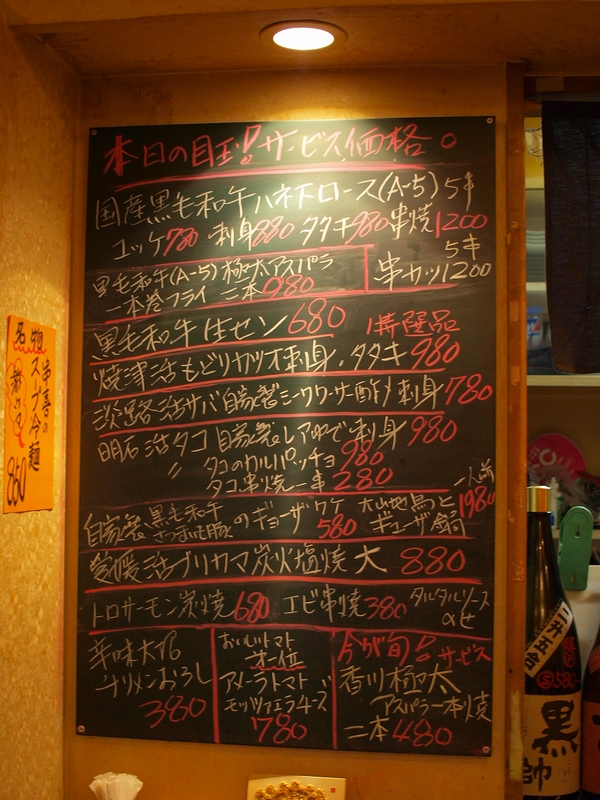 本日の目玉!サービス価格。
国産黒毛和牛ハネ下ロース(A-5) 5串
ユッケ780 刺身880 タタキ980 串焼1200
黒毛和牛(A-5)極太アスパラ
一本巻フライ 二本980
5串
串カツ1200
黒毛和牛生セン680 1特選品
焼津活もどりカツオ刺身・タタキ980
淡路活サバ自家製シークワーサー酢〆刺身780
明石活タコ自家製レアゆで刺身980
〃 タコのカルパッチョ980
タコ串焼一串280
自家製黒毛和牛
さつまいも豚のギョーザ 5ケ580
大山地鳥と
ギョーザ鍋
一人前
1980
愛媛活ブリカマ炭火塩焼 大 880
トロサーモン炭焼680 エビ串焼380 タルタルソース
のせ
辛味大根
チリメンおろし
380
おいしいトマト
第一位
アメーラトマト
モッツァレラチーズ
780
今が旬!サービス
香川極太
アスパラ一本焼
二本480
名物
串喜の
スープ冷麺
850
二升五合
黒
帥